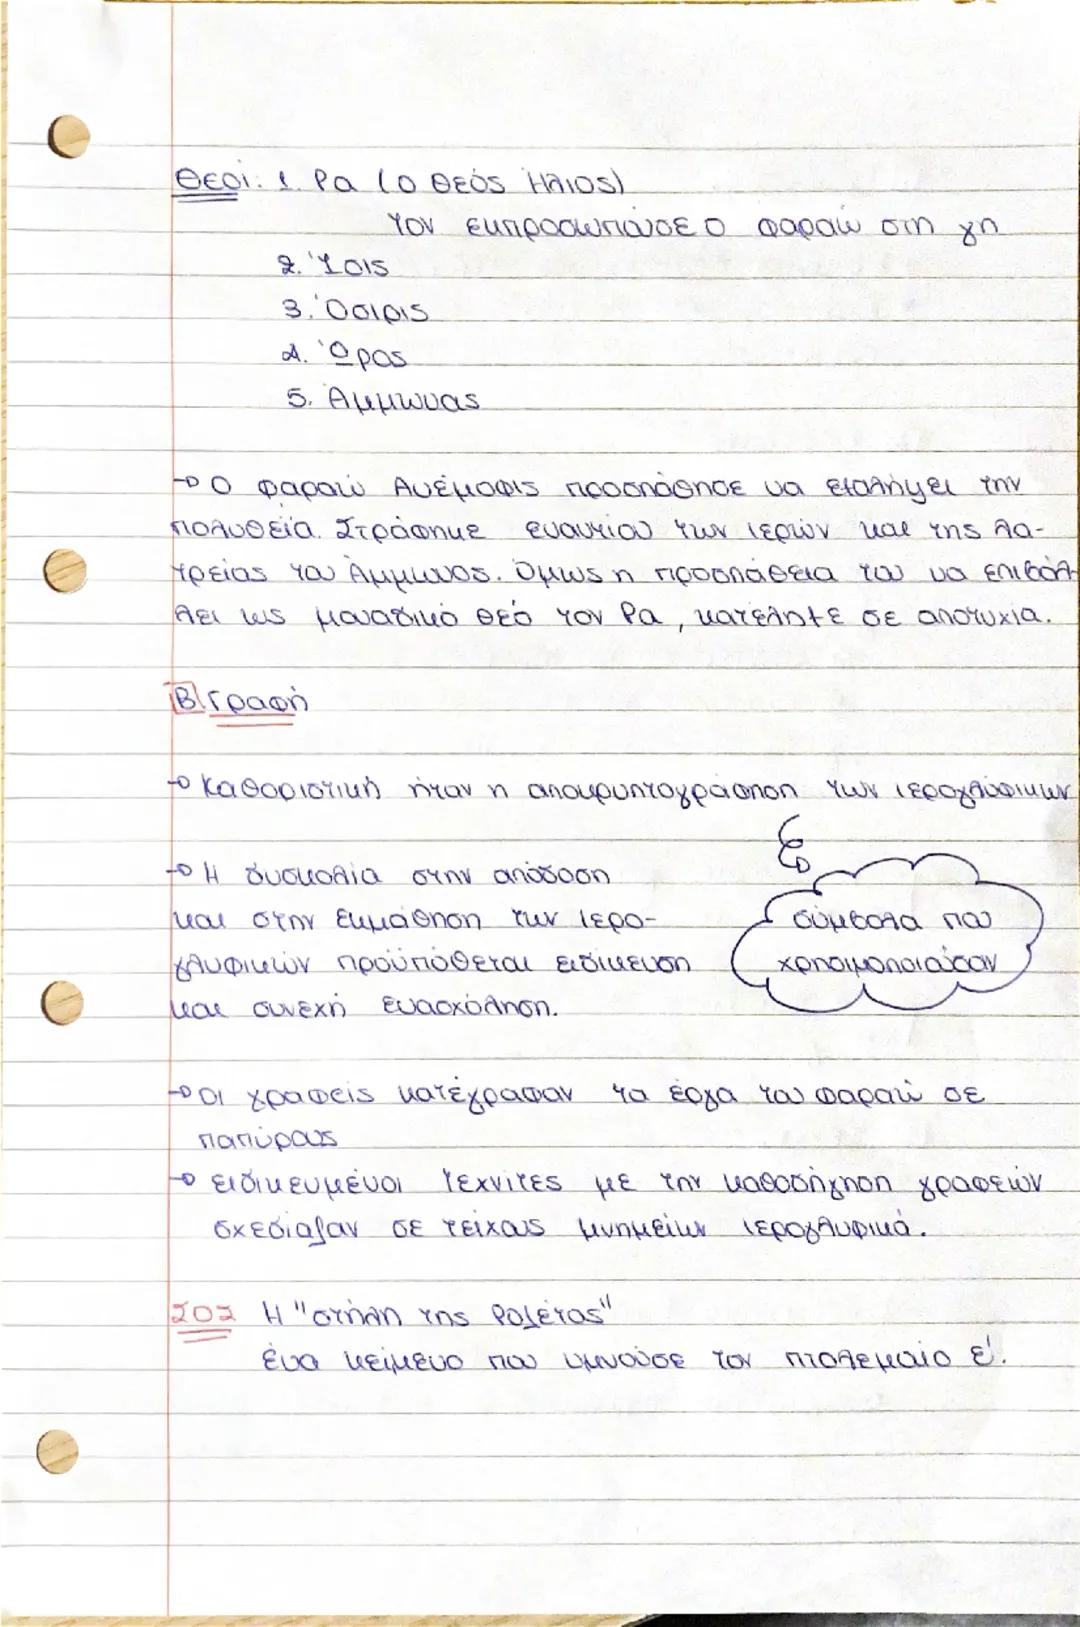 Θεοί: 1. Ρα (ο θεός Ήλιος)
τον εκπροσωπούσε ο φαραώ στη γη
2. Ίσις
3. Όσιρις
4. Ώρος
5. Άμμωνας
→ Ο φαραώ Ανέμοφις προσπάθησε να εξαλήψει την
πολυθεΐα. Στράφηκε εναντίον των ιερών και της λα-
τρείας του Άμμωνος. Όμως η προσπάθεια του να επιβάλ-
λει ως μοναδικό θεό τον Ρα, κατέληξε σε αποτυχία.
Β Γραφή
→ Καθοριστική ήταν η αποκρυπτογράφηση των ιερογλύφικων
→ Η δυσκολία στην απόδοση
και στην εκμάθηση των ιερο-
γλυφικών προϋπόθεται ειδίκευση
και συνεχή ενασχόληση.
σύμβολα που
χρησιμοποιούσαν
→ Οι γραφείς κατέγραφαν τα έργα του φαραώ σε
παπύρους
→ ειδικευμένοι τεχνίτες με την καθοδήγηση γραφειών
σχεδίαζαν σε τείχους μνημείων ιερογλυφικά.
ΣΟΣ Η "στήλη της Ροζέτας"
ένα κείμενο που υμνούσε τον πτολεμαίο Ε'.